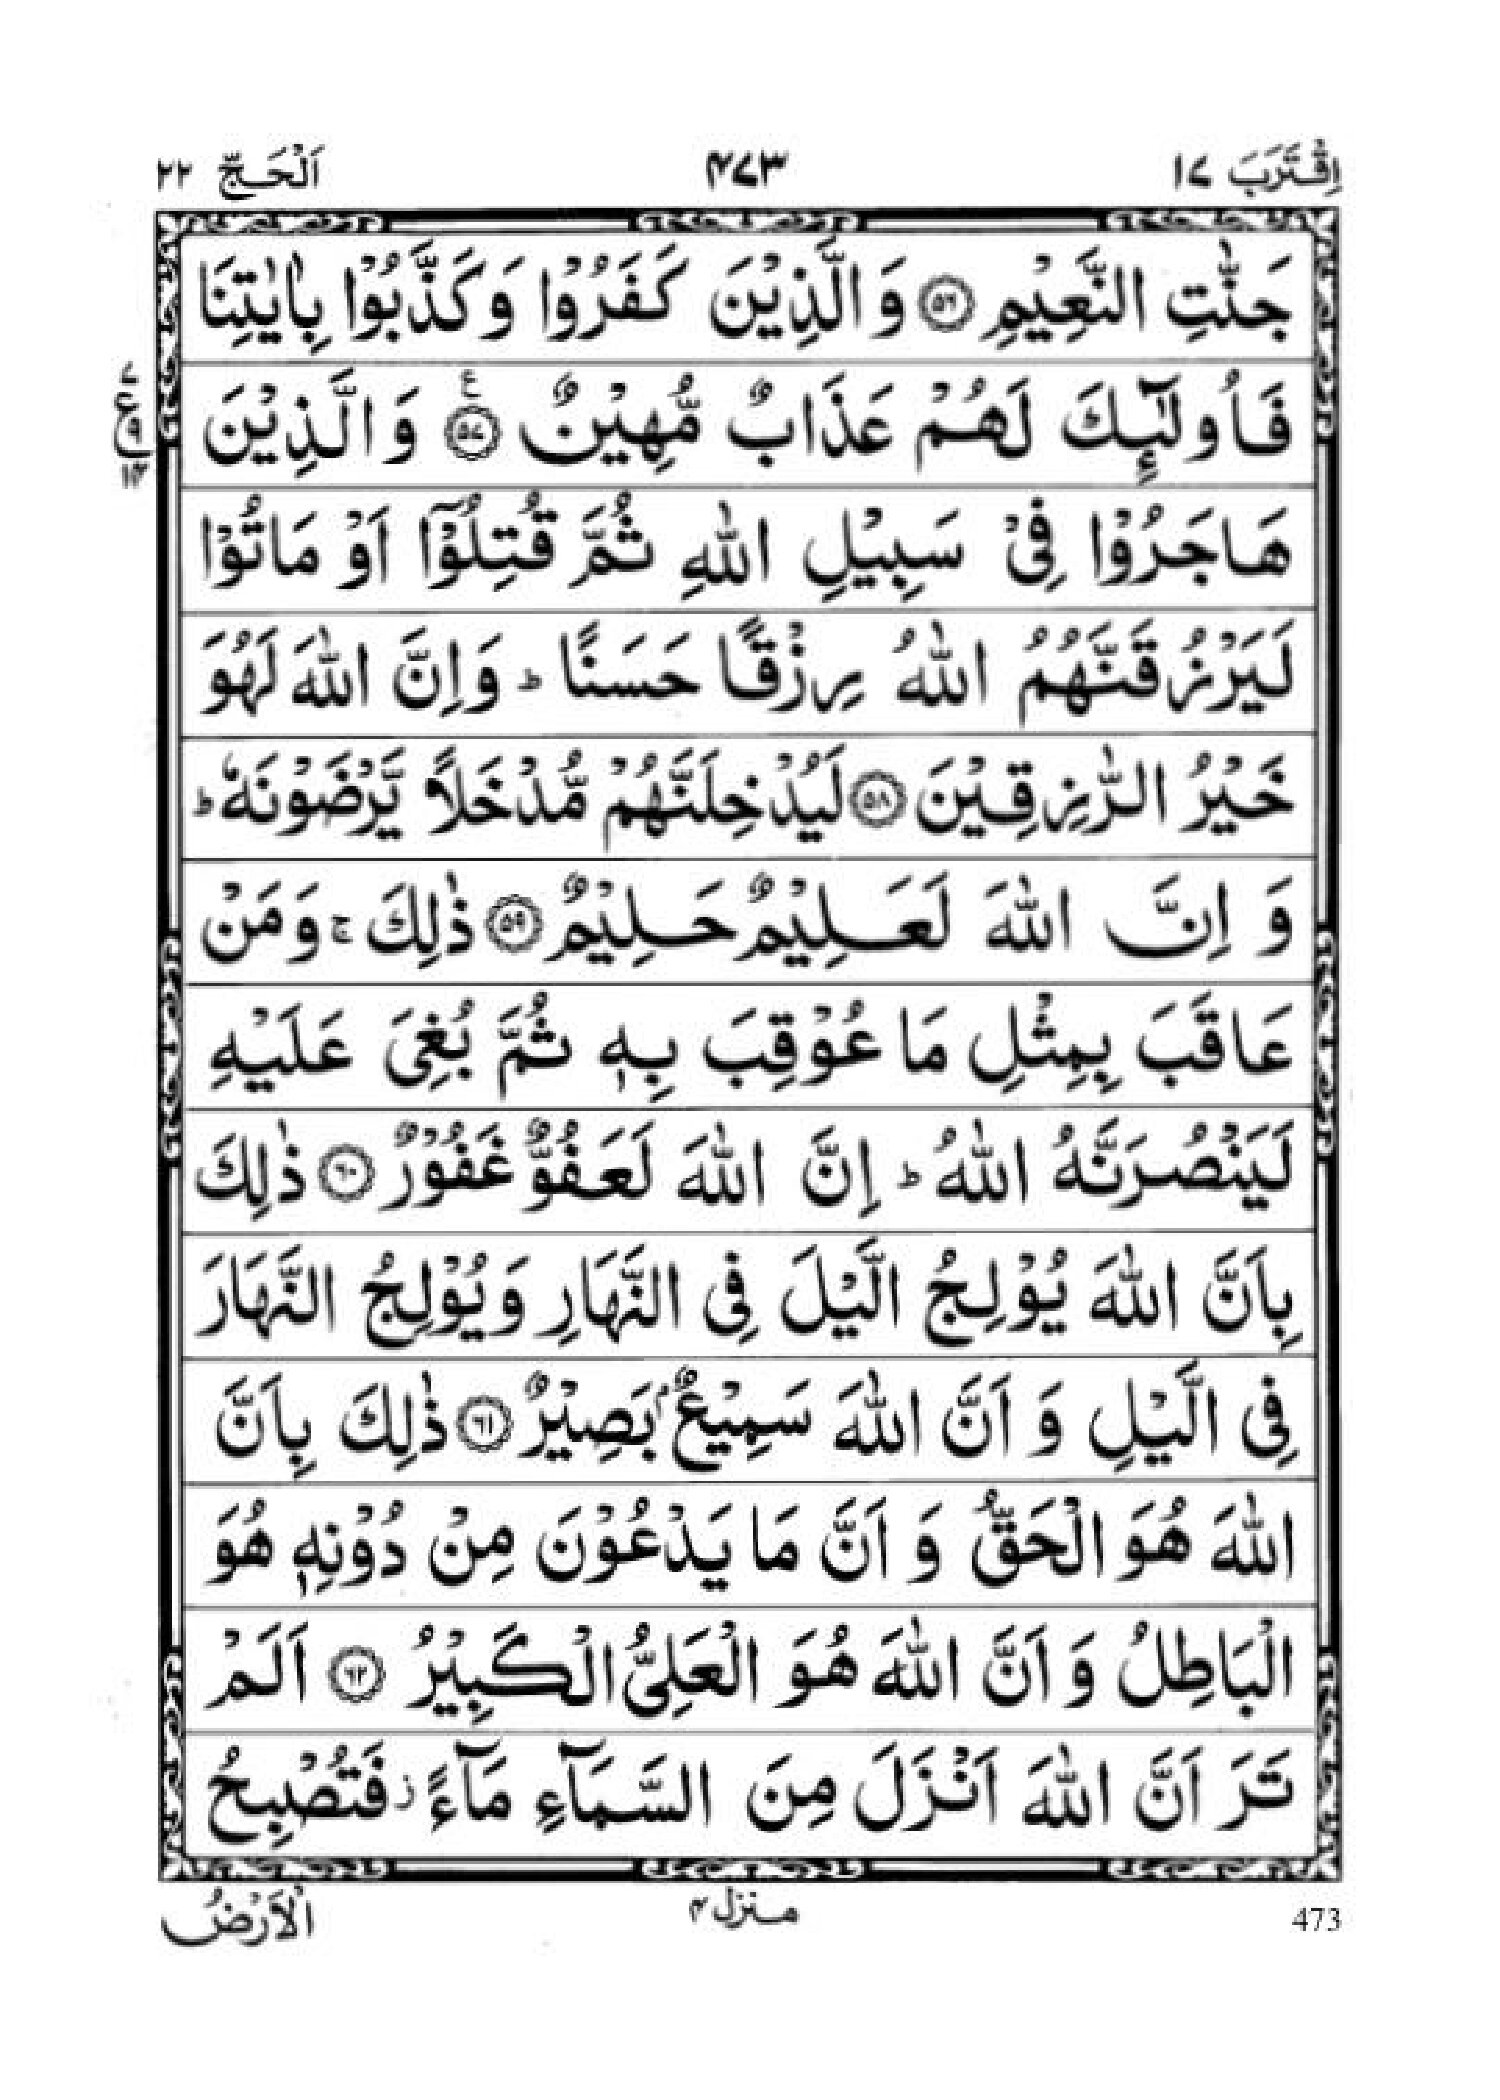 اِقْتَرَبَ ١٧ ۴۷۳ اَلْحَجّ ٢٢
جَنّٰتِ النَّعِيْمِ ۝۵۶ وَالَّذِيْنَ كَفَرُوْا وَكَذَّبُوْا بِاٰيٰتِنَا
فَاُولٰٓئِكَ لَهُمْ عَذَابٌ مُّهِيْنٌ ۝۵۷ وَالَّذِيْنَ
هَاجَرُوْا فِيْ سَبِيْلِ اللّٰهِ ثُمَّ قُتِلُوْٓا اَوْ مَاتُوْا
لَيَرْزُقَنَّهُمُ اللّٰهُ رِزْقًا حَسَنًا ؕ وَاِنَّ اللّٰهَ لَهُوَ
خَيْرُ الرّٰزِقِيْنَ ۝۵۸ لَيُدْخِلَنَّهُمْ مُّدْخَلًا يَّرْضَوْنَهٗ ؕ
وَ اِنَّ اللّٰهَ لَعَلِيْمٌ حَلِيْمٌ ۝۵۹ ذٰلِكَ ۚ وَمَنْ
عَاقَبَ بِمِثْلِ مَا عُوْقِبَ بِهٖ ثُمَّ بُغِيَ عَلَيْهِ
لَيَنْصُرَنَّهُ اللّٰهُ ؕ اِنَّ اللّٰهَ لَعَفُوٌّ غَفُوْرٌ ۝۶۰ ذٰلِكَ
بِاَنَّ اللّٰهَ يُوْلِجُ الَّيْلَ فِي النَّهَارِ وَيُوْلِجُ النَّهَارَ
فِي الَّيْلِ وَ اَنَّ اللّٰهَ سَمِيْعٌۢ بَصِيْرٌ ۝۶۱ ذٰلِكَ بِاَنَّ
اللّٰهَ هُوَ الْحَقُّ وَ اَنَّ مَا يَدْعُوْنَ مِنْ دُوْنِهٖ هُوَ
الْبَاطِلُ وَ اَنَّ اللّٰهَ هُوَ الْعَلِيُّ الْكَبِيْرُ ۝۶۲ اَلَمْ
تَرَ اَنَّ اللّٰهَ اَنْزَلَ مِنَ السَّمَآءِ مَآءً ز فَتُصْبِحُ
473 منزل ۴ الْاَرْضُ